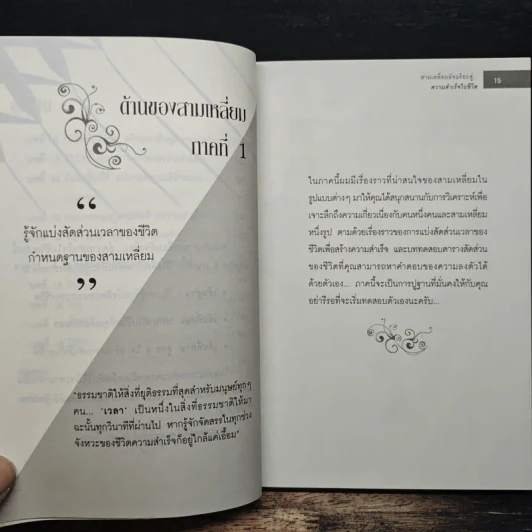 ด้านของสามเหลี่ยม
ภาคที่ 1
“
รู้จักแบ่งสัดส่วนเวลาของชีวิต
กำหนดฐานของสามเหลี่ยม
”
"ธรรมชาติให้สิ่งที่ยุติธรรมที่สุดสำหรับมนุษย์ทุกๆ
คน... 'เวลา' เป็นหนึ่งในสิ่งที่ธรรมชาติให้มา
ฉะนั้นทุกวินาทีที่ผ่านไป หากรู้จักจัดสรรในทุกช่วง
จังหวะของชีวิตความสำเร็จก็อยู่ใกล้แค่เอื้อม"
สามเหลี่ยมอัจฉริยะสู่...
ความสำเร็จในชีวิต
15
ในภาคนี้ผมมีเรื่องราวที่น่าสนใจของสามเหลี่ยมใน
รูปแบบต่างๆ มาให้คุณได้สนุกสนานกับการวิเคราะห์เพื่อ
เจาะลึกถึงความเกี่ยวเนื่องกับคนหนึ่งคนและสามเหลี่ยม
หนึ่งรูป ตามด้วยเรื่องราวของการแบ่งสัดส่วนเวลาของ
ชีวิตเพื่อสร้างความสำเร็จ และบททดสอบตารางสัดส่วน
ของชีวิตที่คุณสามารถหาคำตอบของความลงตัวได้
ด้วยตัวเอง... ภาคนี้จะเป็นการปูฐานที่มั่นคงให้กับคุณ
อย่ารีรอที่จะเริ่มทดสอบตัวเองนะครับ...